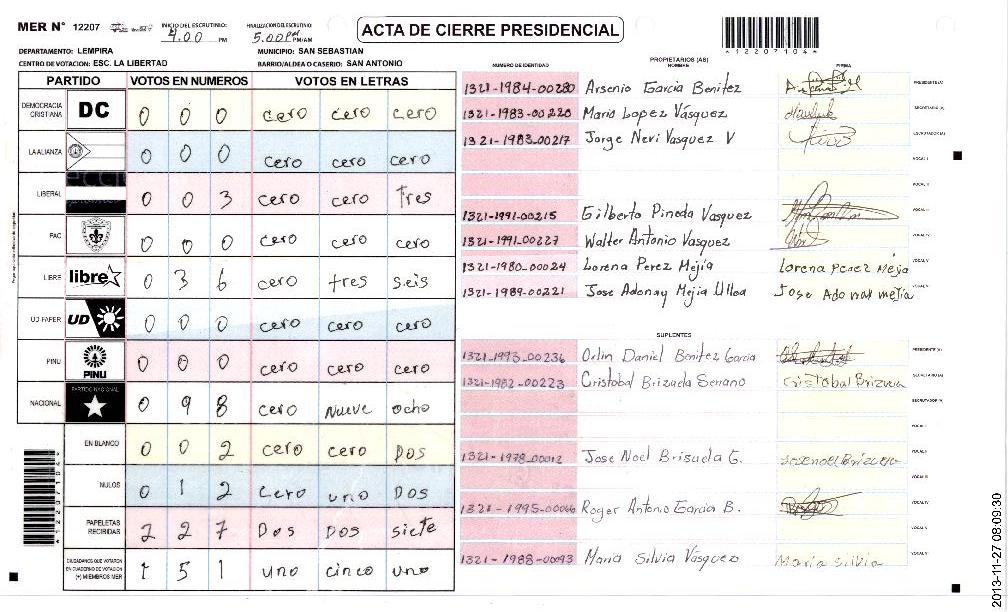 MER N° 12207
INICIO DEL ESCRUTINIO: 4.00 PM
FINALIZACION DEL ESCRUTINIO: 5.00 PM PM/AM
ACTA DE CIERRE PRESIDENCIAL
12207104
DEPARTAMENTO: LEMPIRA
MUNICIPIO: SAN SEBASTIAN
CENTRO DE VOTACION: ESC. LA LIBERTAD
BARRIO/ALDEA O CASERIO: SAN ANTONIO
PARTIDO VOTOS EN NUMEROS VOTOS EN LETRAS
DEMOCRACIA CRISTIANA DC 0 0 0 cero cero cero
LA ALIANZA 0 0 0 cero cero cero
LIBERAL 0 0 3 cero cero tres
PAC 0 0 0 cero cero cero
LIBRE libre 0 3 6 cero tres seis
UD FAPER UD 0 0 0 cero cero cero
PINU PINU 0 0 0 cero cero cero
NACIONAL PARTIDO NACIONAL 0 9 8 cero Nueve ocho
EN BLANCO 0 0 2 cero cero Dos
NULOS 0 1 2 cero uno Dos
PAPELETAS RECIBIDAS 2 2 7 Dos Dos siete
CIUDADANOS QUE VOTARON EN CUADERNO DE VOTACION (+) MIEMBROS MER 1 5 1 uno cinco uno
PROPIETARIOS (AS)
NUMERO DE IDENTIDAD NOMBRE FIRMA
1321-1984-00280 Arsenio Garcia Benitez PRESIDENTE (A)
1321-1983-00220 Mario Lopez Vásquez SECRETARIO (A)
1321-1983-00217 Jorge Neri Vasquez V ESCRUTADOR (A)
VOCAL I
VOCAL II
1321-1991-00215 Gilberto Pineda Vasquez VOCAL III
1321-1991-00227 Walter Antonio Vasquez VOCAL IV
1321-1980-00024 Lorena Perez Mejia Lorena Perez Mejia VOCAL V
1321-1989-00221 Jose Adonay Mejia Ulloa Jose Adonay mejia
SUPLENTES
1321-1993-00236 Orlin Daniel Benitez Garcia PRESIDENTE (A)
1321-1982-00223 Cristobal Brizuela Serrano Cristobal Brizuela SECRETARIO (A)
ESCRUTADOR (A)
VOCAL I
1321-1978-00012 Jose Noel Brisuela G. Jose noel Brizuela VOCAL II
VOCAL III
1321-1995-00066 Roger Antonio Garcia B. VOCAL IV
VOCAL V
1321-1988-00093 Maria Silvia Vásquez Maria Silvia VOCAL VI
12207104
2013-11-27 08:09:30